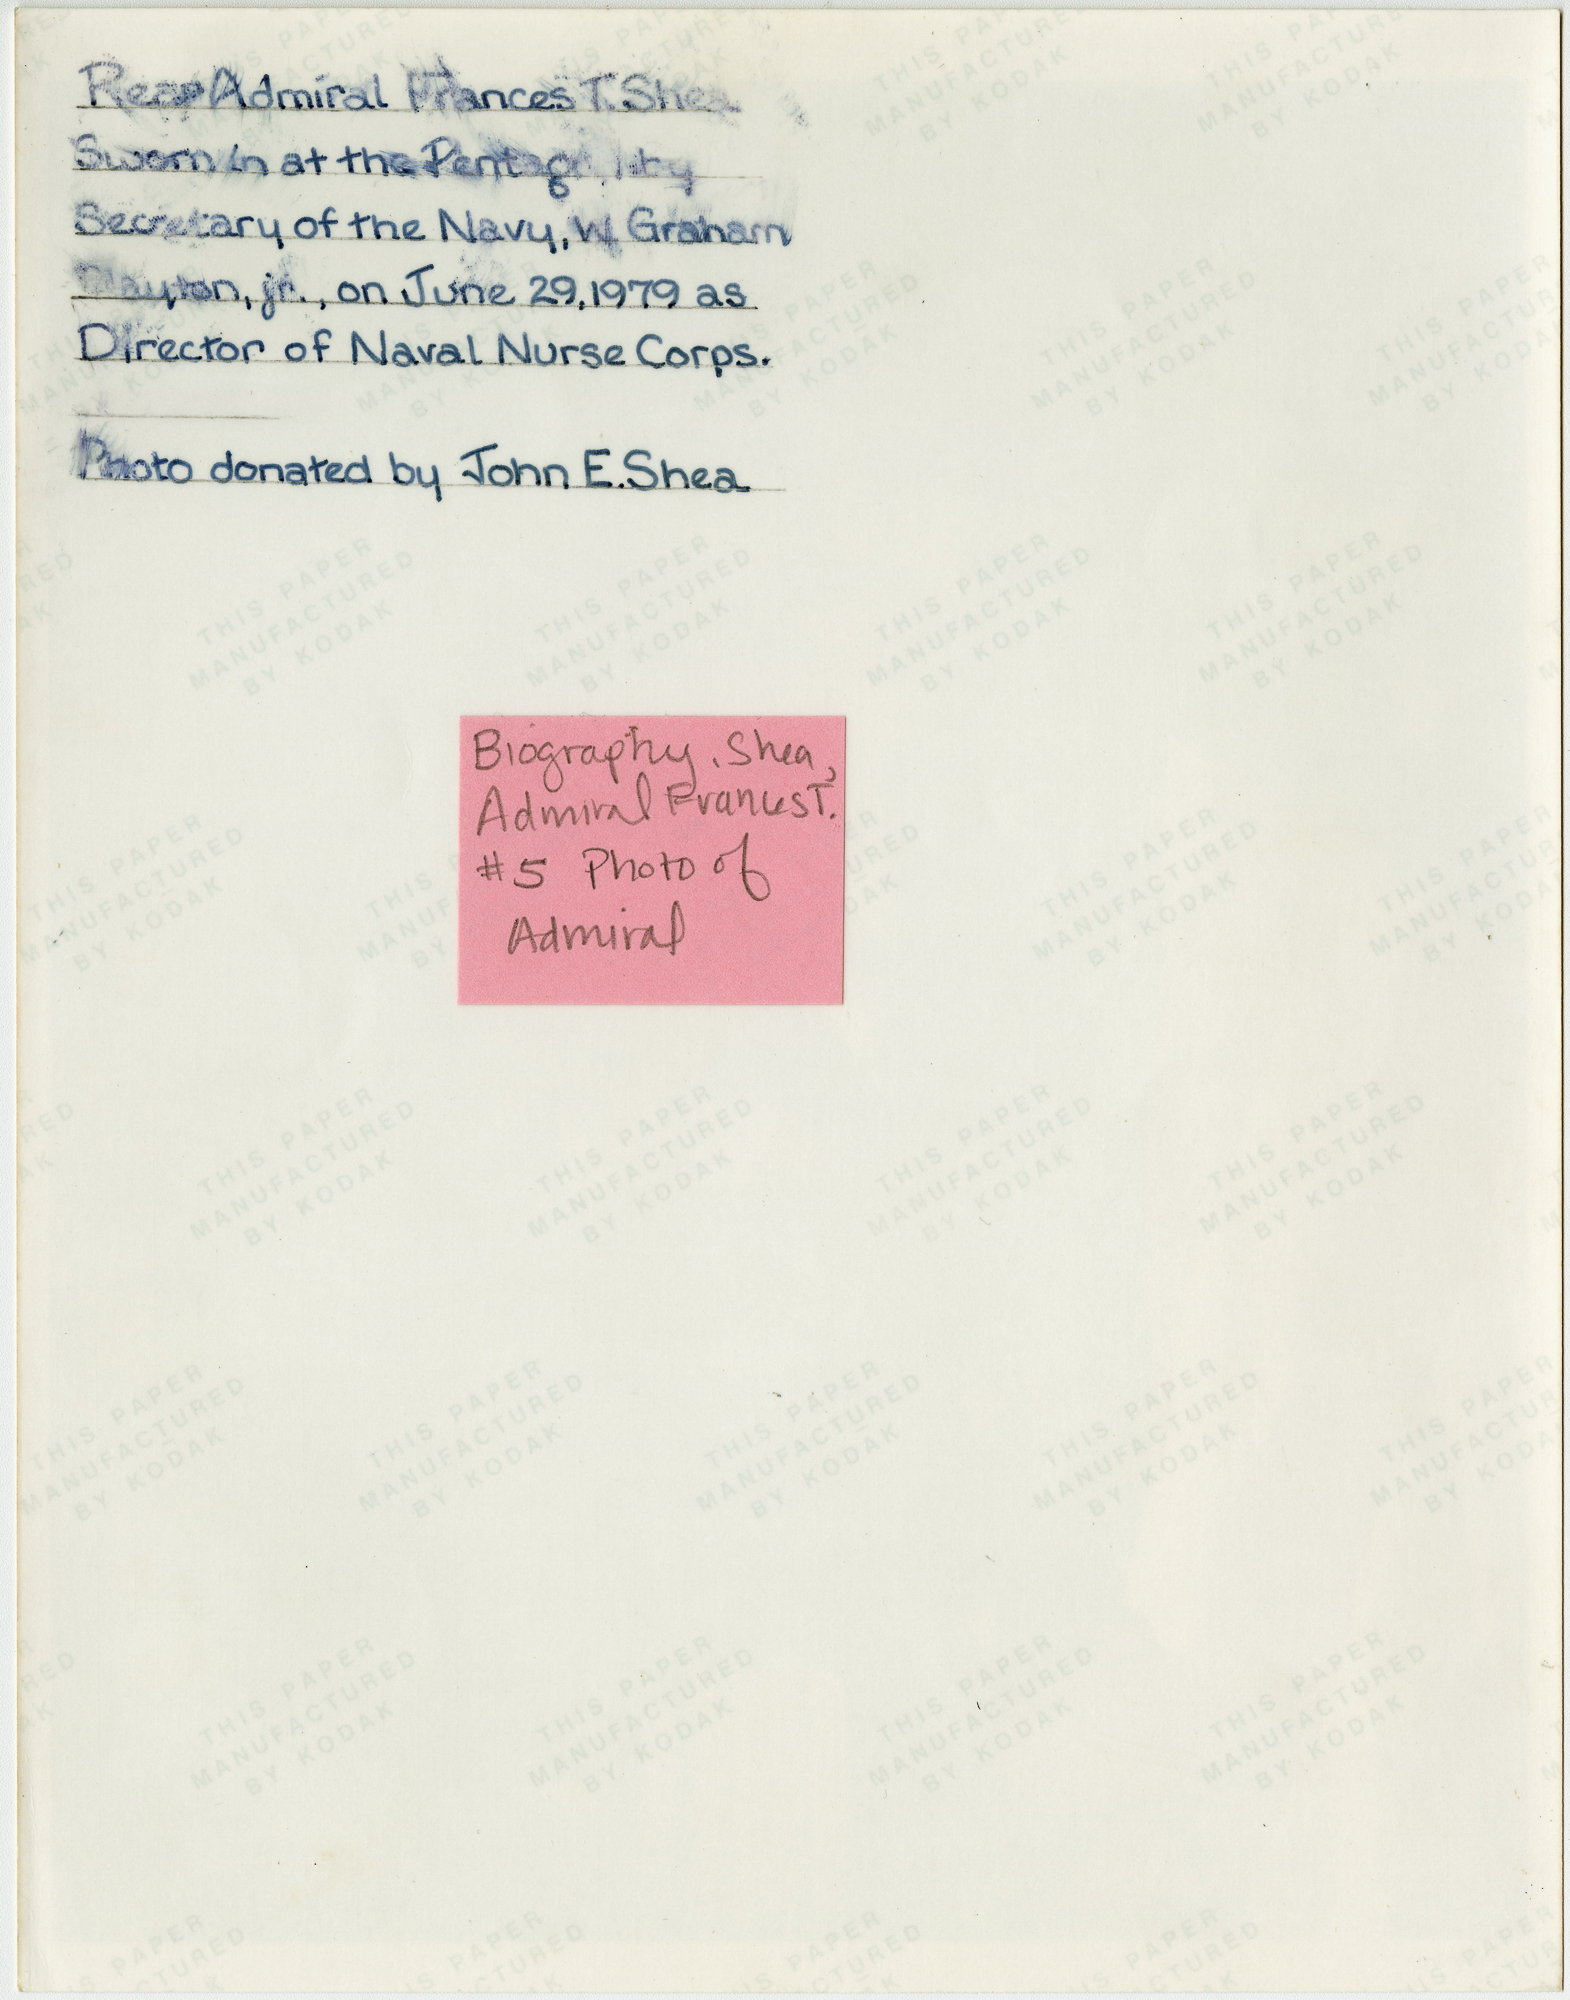 Rear Admiral Frances T. Shea
Sworn in at the Pentagon by
Secretary of the Navy, W. Graham
jr., on June 29, 1979 as
Director of Naval Nurse Corps.
Photo donated by John E. Shea
Biography. Shea,
Admiral Frances T.
#5 Photo of
Admiral
THIS PAPER
MANUFACTURED
BY KODAK